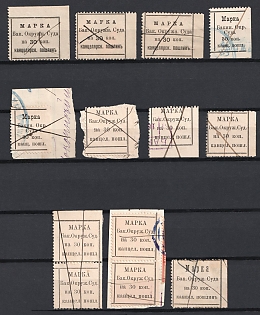 МАРКА
Бак. Окруж. Суда
на 30 коп.
канцелярск. пошлин.
МАРКА
Бак. Окруж. Суда
на 30 коп.
канцелярск. пошлин.
МАРКА
Бак. Окруж. Суда
на 30 коп.
канцелярск. пошлин.
Марка
Бакин. Окр.
Суда
50 коп.
канц. пошл.
Марка
Бакин. Окр.
Суда
50 коп.
канц. пошл.
МАРКА
Бак. Окруж. Суд.
на 30 коп.
канцел. пошл.
МАРКА
Бак. Окруж. Суд.
на 30 коп.
канцел. пошл.
МАРКА
Бак. Окруж. Суд.
на 30 коп.
канцел. пошл.
МАРКА
Бак. Окруж. Суд.
на 30 коп.
канцел. пошл.
МАРКА
Бак. Окруж. Суд.
на 30 коп.
канцел. пошл.
МАРКА
Бак. Окруж. Суд.
на 30 коп.
канцел. пошл.
МАРКА
Бак. Окруж. Суд.
на 30 коп.
канцел. пошл.
МАРКА
на 30 коп.